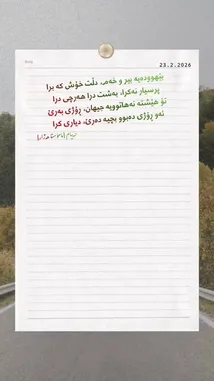 23.2.2026
بێهوودەیە بیر و خەم، دڵت خۆش کە برا
پرسیار نەکرا، بەشت درا هەرچی درا
تۆ هێشتە نەهاتوویە جیهان، ڕۆژی بەرێ
ئەو ڕۆژی دەبوو بچیە دەرێ، دیاری کرا